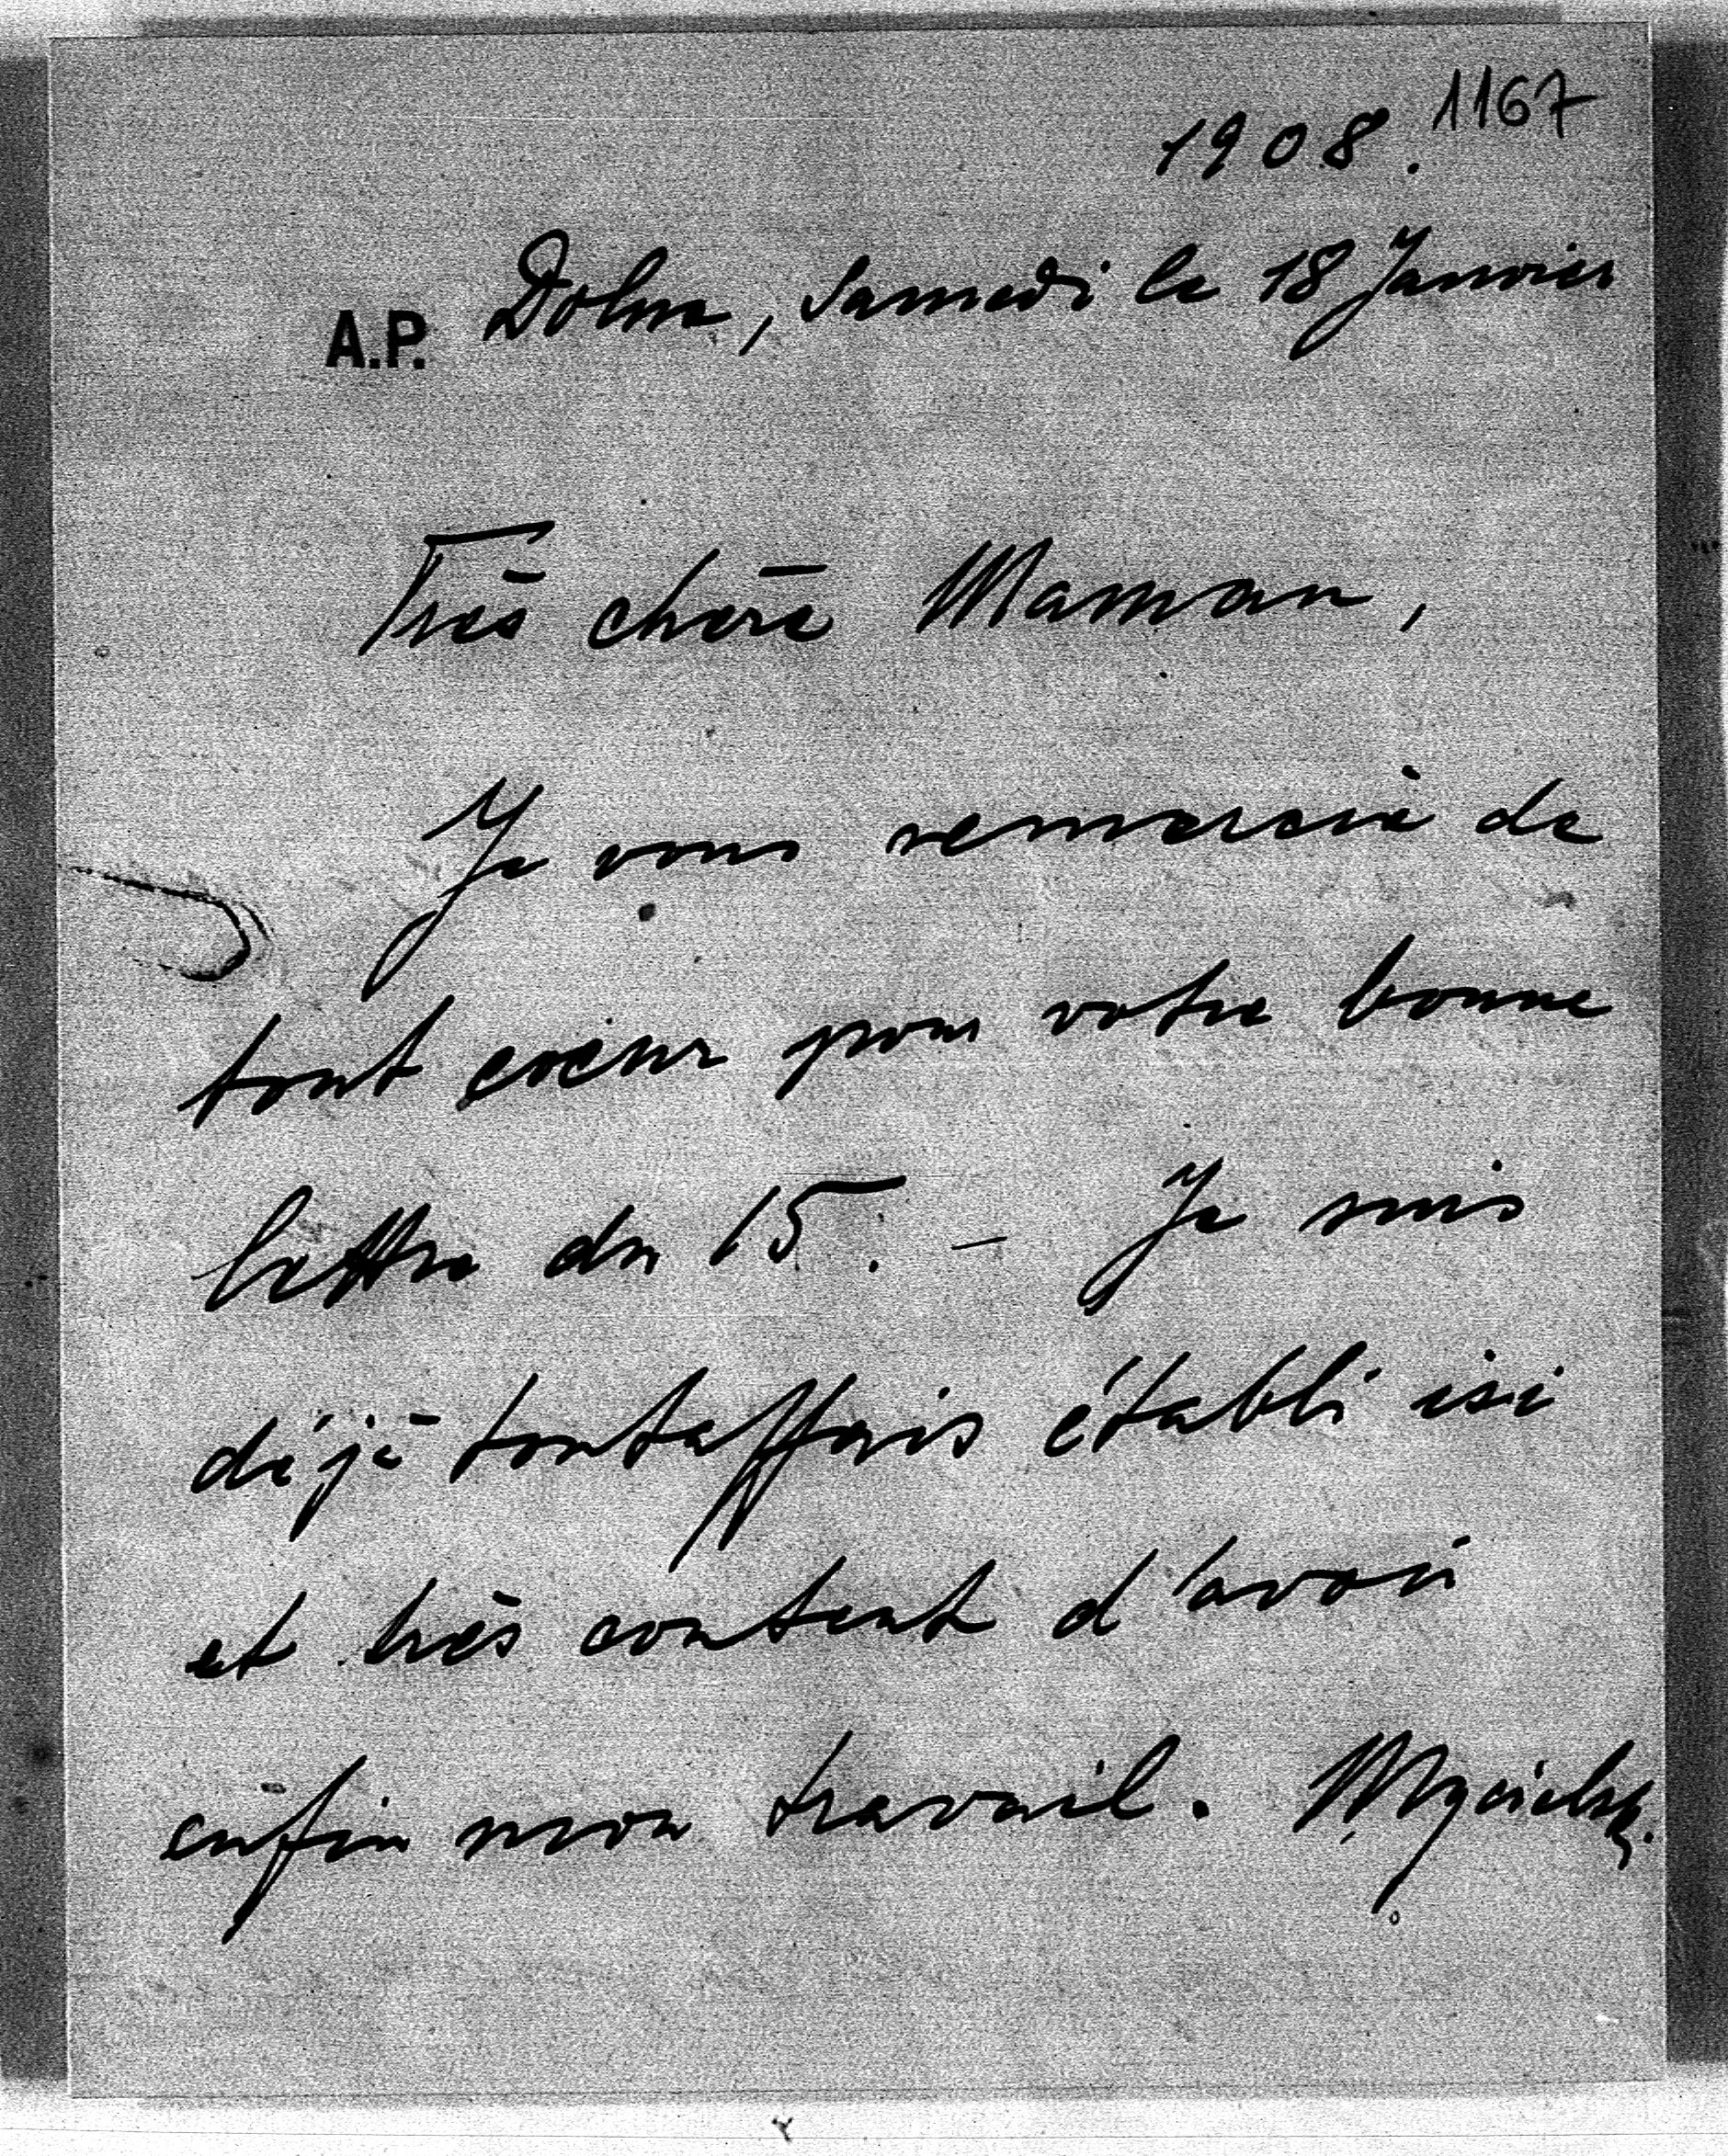 1167
1908.
A.P. Dolna, Samedi le 18 Janvier
Très chère Maman,
Je vous remercie de
tout coeur pour votre bonne
lettre du 15. — Je suis
déjà toutaffais établi isi
et très content d'avoir
enfin mon travail. Mycielsky.